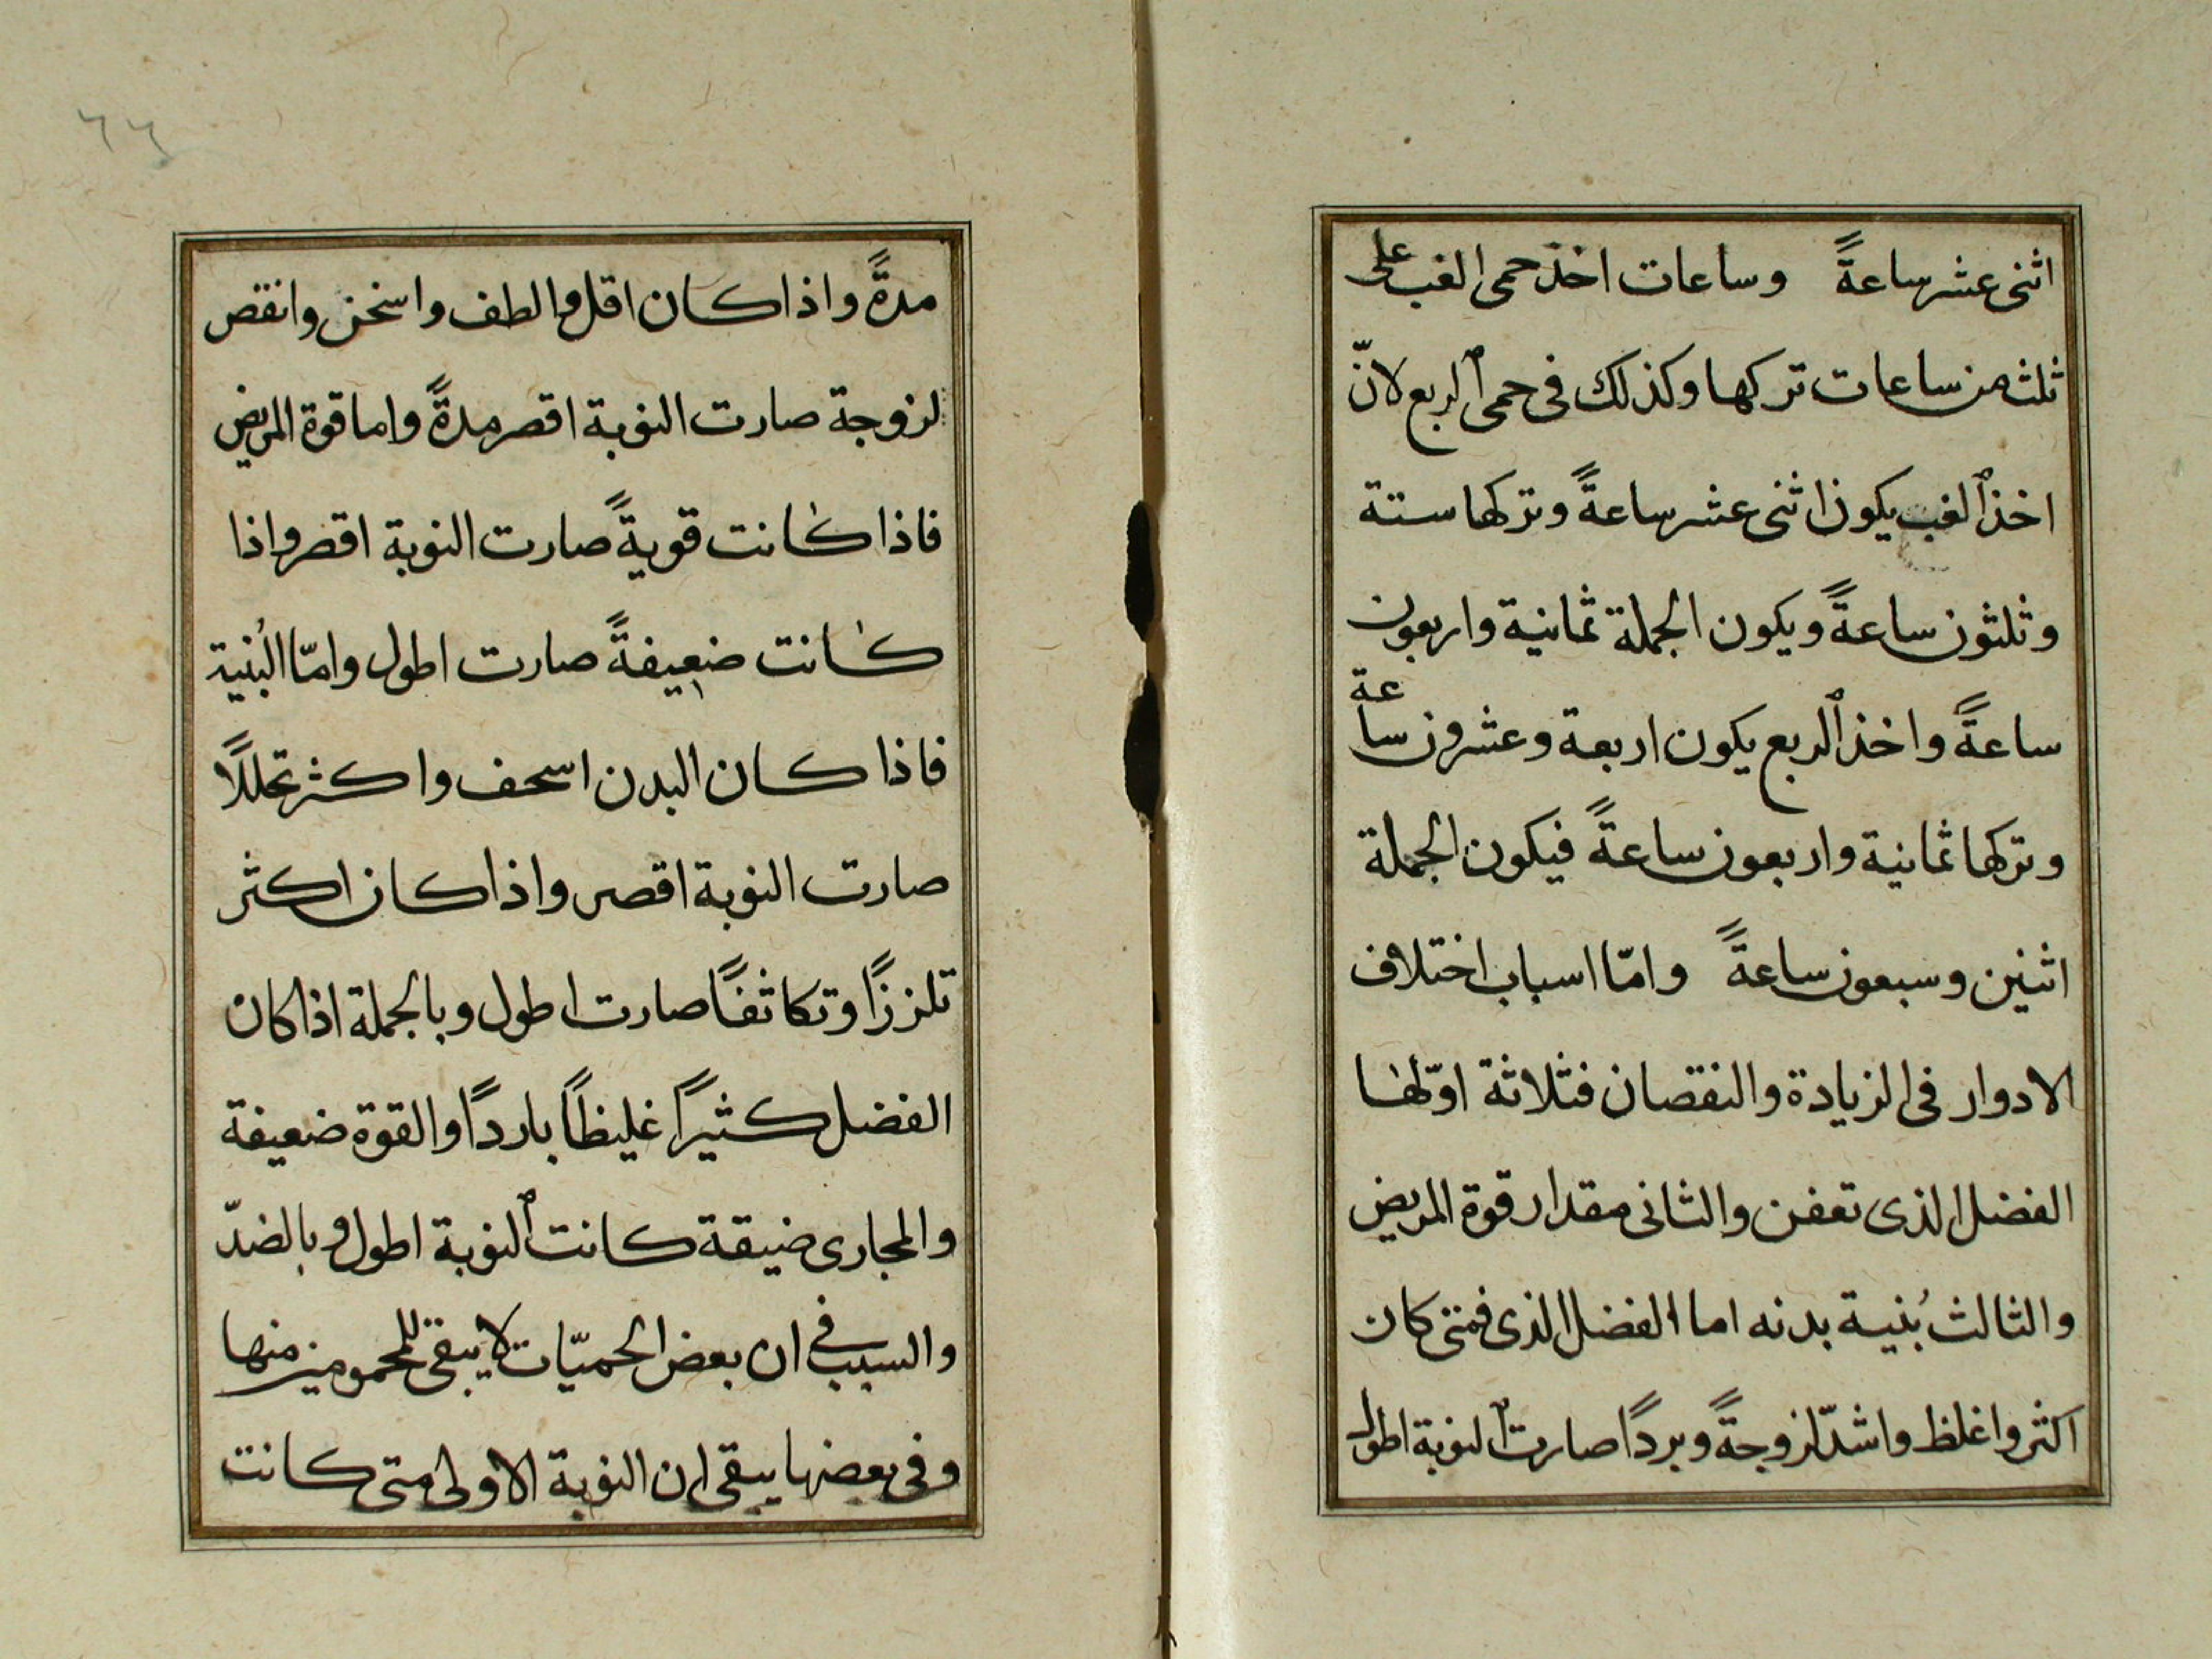 اثنى عشر ساعةً وساعات اخذ حمى الغب على
ثلث من ساعات تركها وكذلك فى حمى الربع لانّ
اخذ الغب يكون اثنى عشر ساعةً وتركها ستة
وثلثون ساعةً ويكون الجملة ثمانية واربعون
ساعةً واخذ الربع يكون اربعة وعشرون ساعة
وتركها ثمانية واربعون ساعةً فيكون الجملة
اثنين وسبعون ساعةً وامّا اسباب اختلاف
الادوار فى الزيادة والنقصان فثلاثة اوّلها
الفضل الذى تعفن والثانى مقدار قوة المريض
والثالث بُنية بدنه اما الفضل الذى فمتى كان
اكثر واغلظ واشدّ لزوجةً وبردًا صارت النوبة اطول
٦٦
مدةً واذا كان اقل والطف واسخن وانقص
لزوجة صارت النوبة اقصر مدةً واما قوة المريض
فاذا كانت قويةً صارت النوبة اقصر واذا
كانت ضعيفةً صارت اطول وامّا البُنية
فاذا كان البدن اسحف واكثر تحللًا
صارت النوبة اقصر واذا كان اكثر
تلززًا وتكاثفًا صارت اطول وبالجملة اذا كان
الفضل كثيرًا غليظًا باردًا والقوة ضعيفة
والمجارى ضيقة كانت النوبة اطول وبالضدّ
والسبب فى ان بعض الحميّات لا يبقى للمحمومين منها
وفى بعضها يبقى ان النوبة الاولى متى كانت